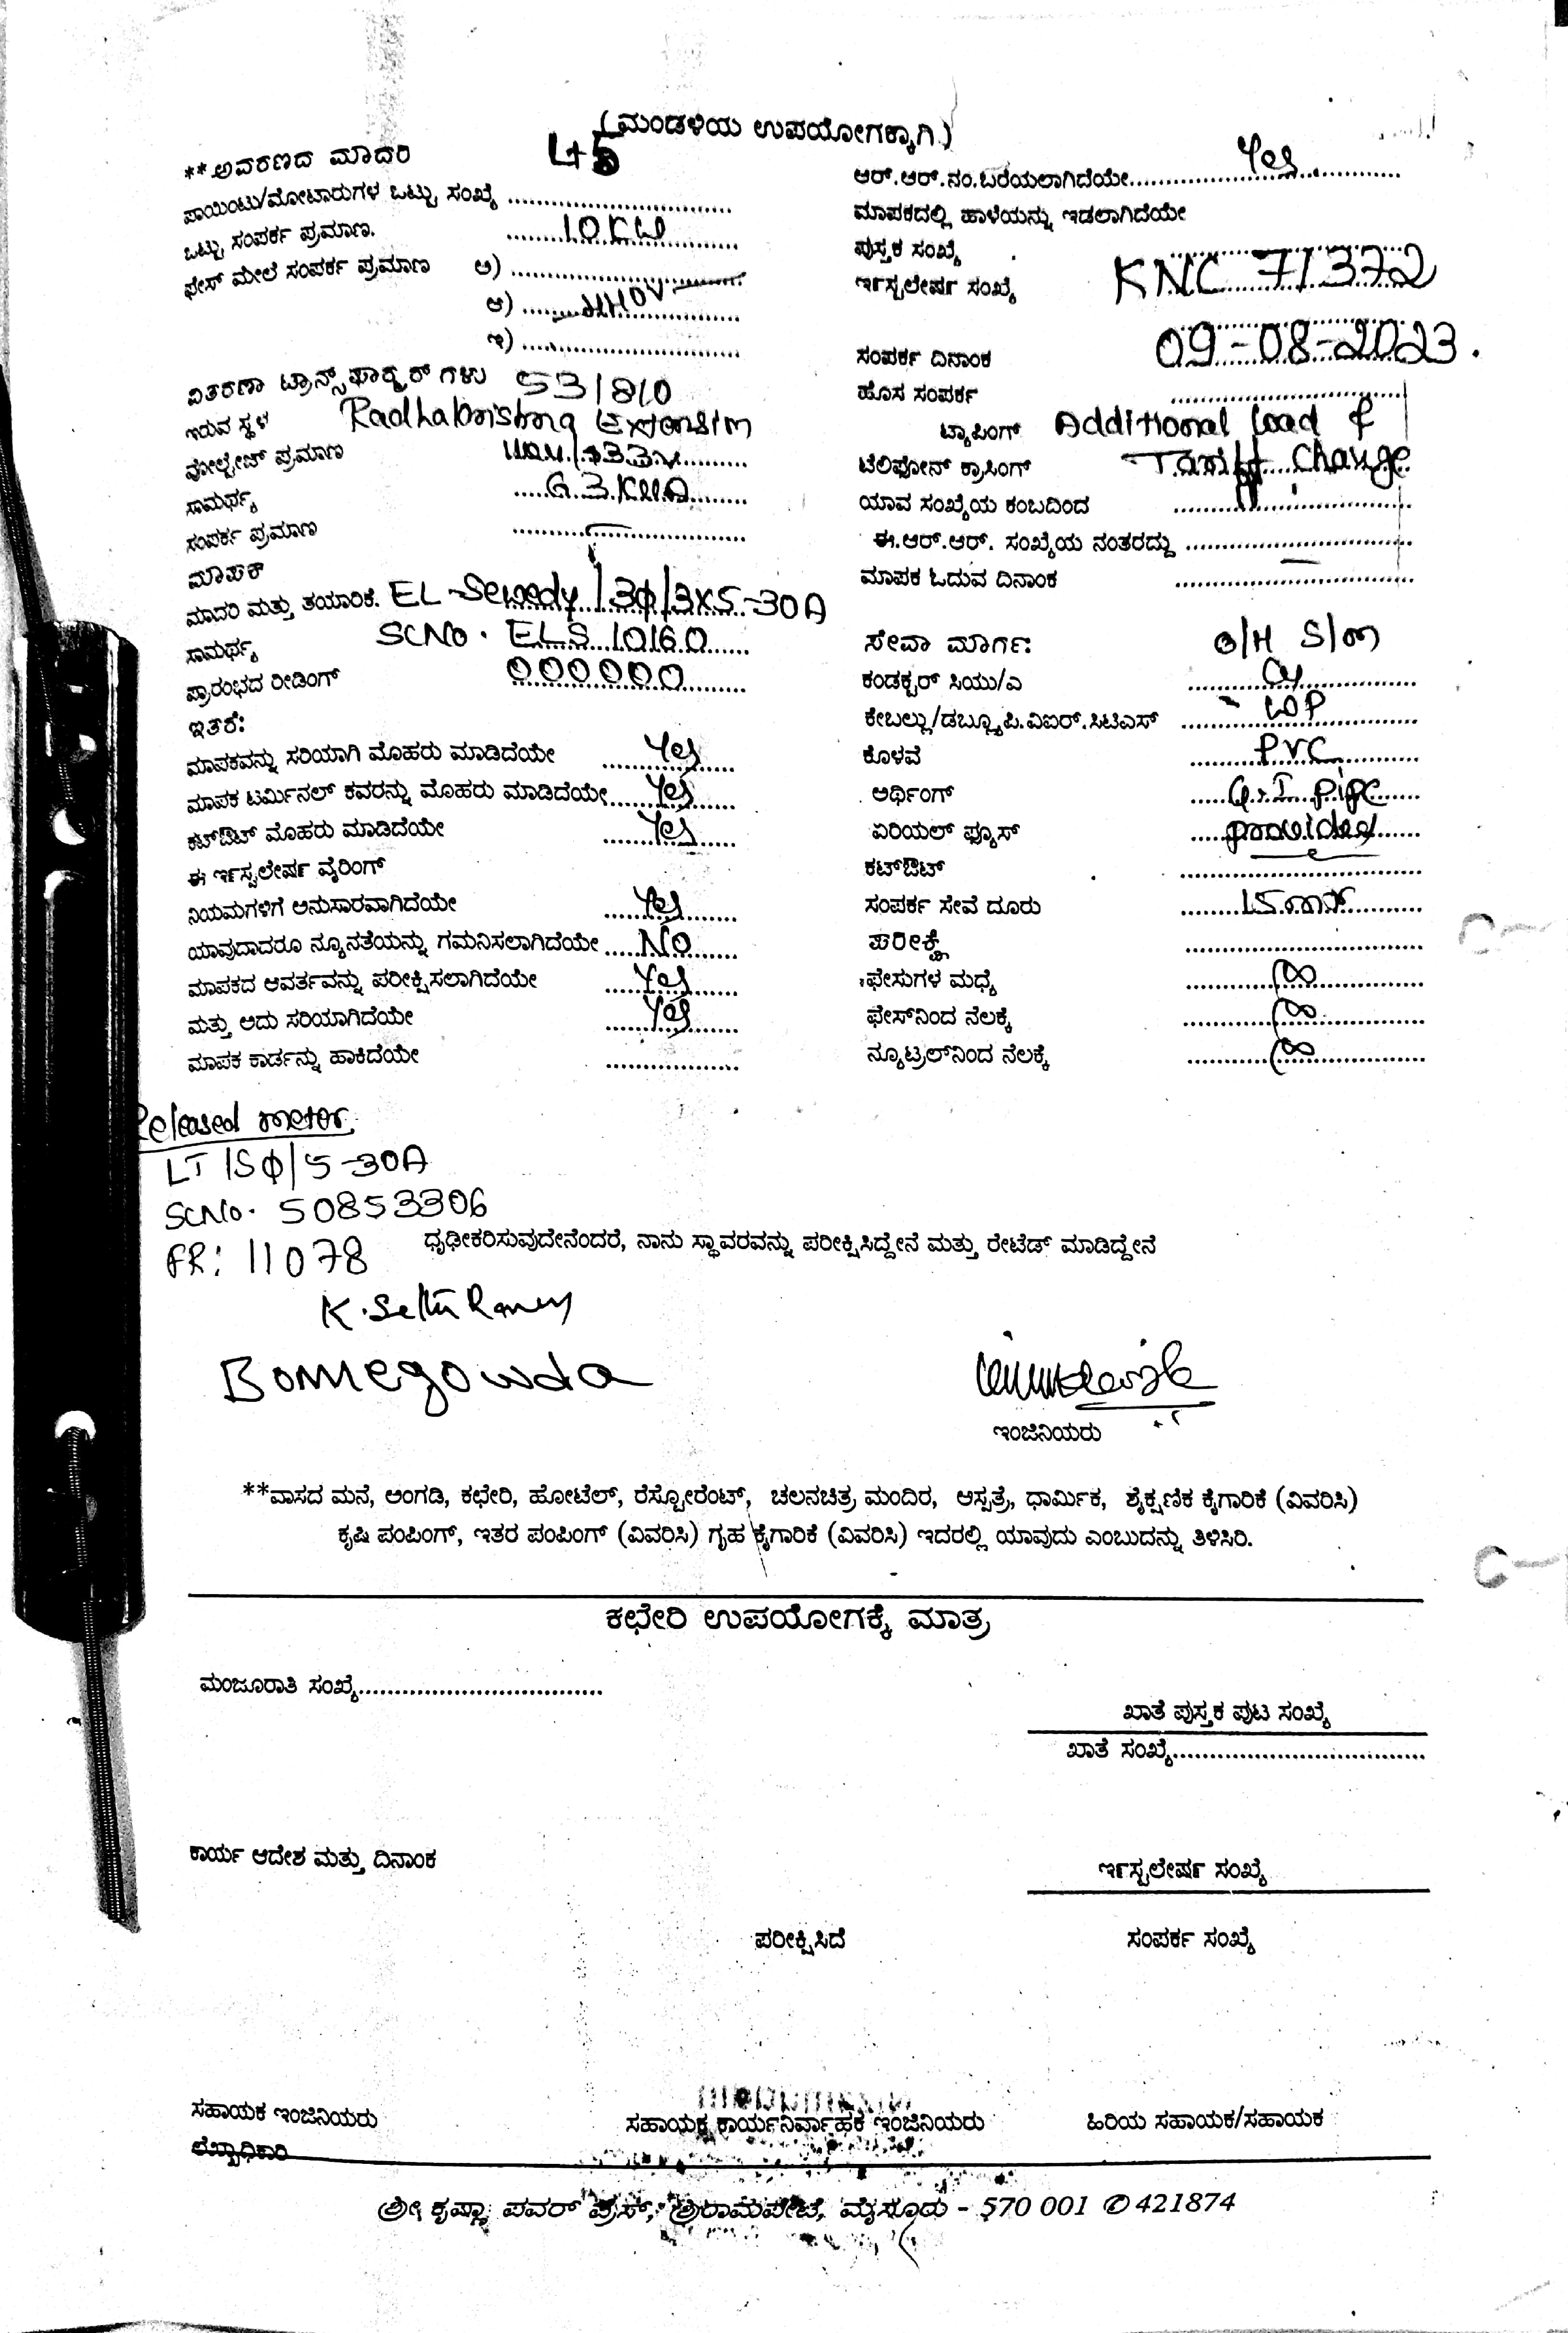 (ಮಂಡಳಿಯ ಉಪಯೋಗಕ್ಕಾಗಿ)
**ಅವರಣದ ಮಾದರಿ
ಪಾಯಿಂಟು/ಮೋಟಾರುಗಳ ಒಟ್ಟು ಸಂಖ್ಯೆ 45
ಒಟ್ಟು ಸಂಪರ್ಕ ಪ್ರಮಾಣ. 10KW
ಫೇಸ್ ಮೇಲೆ ಸಂಪರ್ಕ ಪ್ರಮಾಣ ಅ)
ಆ)
ಇ)
ವಿತರಣಾ ಟ್ರಾನ್ಸ್‌ಫಾರ್ಮರ್ ಗಳು
ಇರುವ ಸ್ಥಳ
ವೋಲ್ಟೇಜ್ ಪ್ರಮಾಣ
ಸಾಮರ್ಥ್ಯ
ಸಂಪರ್ಕ ಪ್ರಮಾಣ
ಮಾಪಕ
ಮಾದರಿ ಮತ್ತು ತಯಾರಿಕೆ. 3φ/3X5-30A
ಸಾಮರ್ಥ್ಯ SCNo. ELS 10160
ಪ್ರಾರಂಭದ ರೀಡಿಂಗ್ 000000
ಇತರೆ:
ಮಾಪಕವನ್ನು ಸರಿಯಾಗಿ ಮೊಹರು ಮಾಡಿದೆಯೇ Yes
ಮಾಪಕ ಟರ್ಮಿನಲ್ ಕವರನ್ನು ಮೊಹರು ಮಾಡಿದೆಯೇ Yes
ಕಟ್‌ಔಟ್ ಮೊಹರು ಮಾಡಿದೆಯೇ Yes
ಈ ಇನ್‌ಸ್ಟಲೇಷನ್ ವೈರಿಂಗ್
ನಿಯಮಗಳಿಗೆ ಅನುಸಾರವಾಗಿದೆಯೇ Yes
ಯಾವುದಾದರೂ ನ್ಯೂನತೆಯನ್ನು ಗಮನಿಸಲಾಗಿದೆಯೇ No
ಮಾಪಕದ ಆವರ್ತವನ್ನು ಪರೀಕ್ಷಿಸಲಾಗಿದೆಯೇ Yes
ಮತ್ತು ಅದು ಸರಿಯಾಗಿದೆಯೇ Yes
ಮಾಪಕ ಕಾರ್ಡನ್ನು ಹಾಕಿದೆಯೇ
ಆರ್.ಆರ್.ನಂ.ಬರೆಯಲಾಗಿದೆಯೇ Yes
ಮಾಪಕದಲ್ಲಿ ಹಾಳೆಯನ್ನು ಇಡಲಾಗಿದೆಯೇ
ಪುಸ್ತಕ ಸಂಖ್ಯೆ
ಇನ್‌ಸ್ಟಲೇಷನ್ ಸಂಖ್ಯೆ KNC 71372
ಸಂಪರ್ಕ ದಿನಾಂಕ 09-08-2023.
ಹೊಸ ಸಂಪರ್ಕ
ಟ್ಯಾಪಿಂಗ್ Additional load &
ಟೆಲಿಫೋನ್ ಕ್ರಾಸಿಂಗ್ Tariff Change
ಯಾವ ಸಂಖ್ಯೆಯ ಕಂಬದಿಂದ
ಈ.ಆರ್.ಆರ್. ಸಂಖ್ಯೆಯ ನಂತರದ್ದು
ಮಾಪಕ ಓದುವ ದಿನಾಂಕ
ಸೇವಾ ಮಾರ್ಗ:
ಕಂಡಕ್ಟರ್ ಸಿಯು/ಎ
ಕೇಬಲ್ಲು/ಡಬ್ಲ್ಯೂಪಿ.ವಿಐಆರ್.ಸಿಟಿಎಸ್ WP
ಕೊಳವೆ PVC
ಅರ್ಥಿಂಗ್ G.I pipe
ಏರಿಯಲ್ ಫ್ಯೂಸ್ provided
ಕಟ್‌ಔಟ್
ಸಂಪರ್ಕ ಸೇವೆ ದೂರು
ಪರೀಕ್ಷೆ
ಫೇಸುಗಳ ಮಧ್ಯೆ ∞
ಫೇಸ್‌ನಿಂದ ನೆಲಕ್ಕೆ ∞
ನ್ಯೂಟ್ರಲ್‌ನಿಂದ ನೆಲಕ್ಕೆ ∞
Released meter
SCNo. 50853306
FR: 11078
ಧೃಢೀಕರಿಸುವುದೇನೆಂದರೆ, ನಾನು ಸ್ಥಾವರವನ್ನು ಪರೀಕ್ಷಿಸಿದ್ದೇನೆ ಮತ್ತು ರೇಟೆಡ್ ಮಾಡಿದ್ದೇನೆ
ಇಂಜಿನಿಯರು
**ವಾಸದ ಮನೆ, ಅಂಗಡಿ, ಕಛೇರಿ, ಹೋಟೆಲ್, ರೆಸ್ಟೋರೆಂಟ್, ಚಲನಚಿತ್ರ ಮಂದಿರ, ಆಸ್ಪತ್ರೆ, ಧಾರ್ಮಿಕ, ಶೈಕ್ಷಣಿಕ ಕೈಗಾರಿಕೆ (ವಿವರಿಸಿ)
ಕೃಷಿ ಪಂಪಿಂಗ್, ಇತರ ಪಂಪಿಂಗ್ (ವಿವರಿಸಿ) ಗೃಹ ಕೈಗಾರಿಕೆ (ವಿವರಿಸಿ) ಇದರಲ್ಲಿ ಯಾವುದು ಎಂಬುದನ್ನು ತಿಳಿಸಿರಿ.
ಕಛೇರಿ ಉಪಯೋಗಕ್ಕೆ ಮಾತ್ರ
ಮಂಜೂರಾತಿ ಸಂಖ್ಯೆ
ಖಾತೆ ಪುಸ್ತಕ ಪುಟ ಸಂಖ್ಯೆ
ಖಾತೆ ಸಂಖ್ಯೆ
ಕಾರ್ಯ ಆದೇಶ ಮತ್ತು ದಿನಾಂಕ
ಇನ್‌ಸ್ಟಲೇಷನ್ ಸಂಖ್ಯೆ
ಪರೀಕ್ಷಿಸಿದೆ
ಸಂಪರ್ಕ ಸಂಖ್ಯೆ
ಸಹಾಯಕ ಇಂಜಿನಿಯರು
ಸಹಾಯಕ ಕಾರ್ಯನಿರ್ವಾಹಕ ಇಂಜಿನಿಯರು
ಹಿರಿಯ ಸಹಾಯಕ/ಸಹಾಯಕ
ಲೆಖ್ಖಾಧಿಕಾರಿ
ಶ್ರೀ ಕೃಷ್ಣಾ ಪವರ್ ಪ್ರೆಸ್, ಶ್ರೀರಾಮಪೇಟೆ, ಮೈಸೂರು - 570 001 ✆ 421874